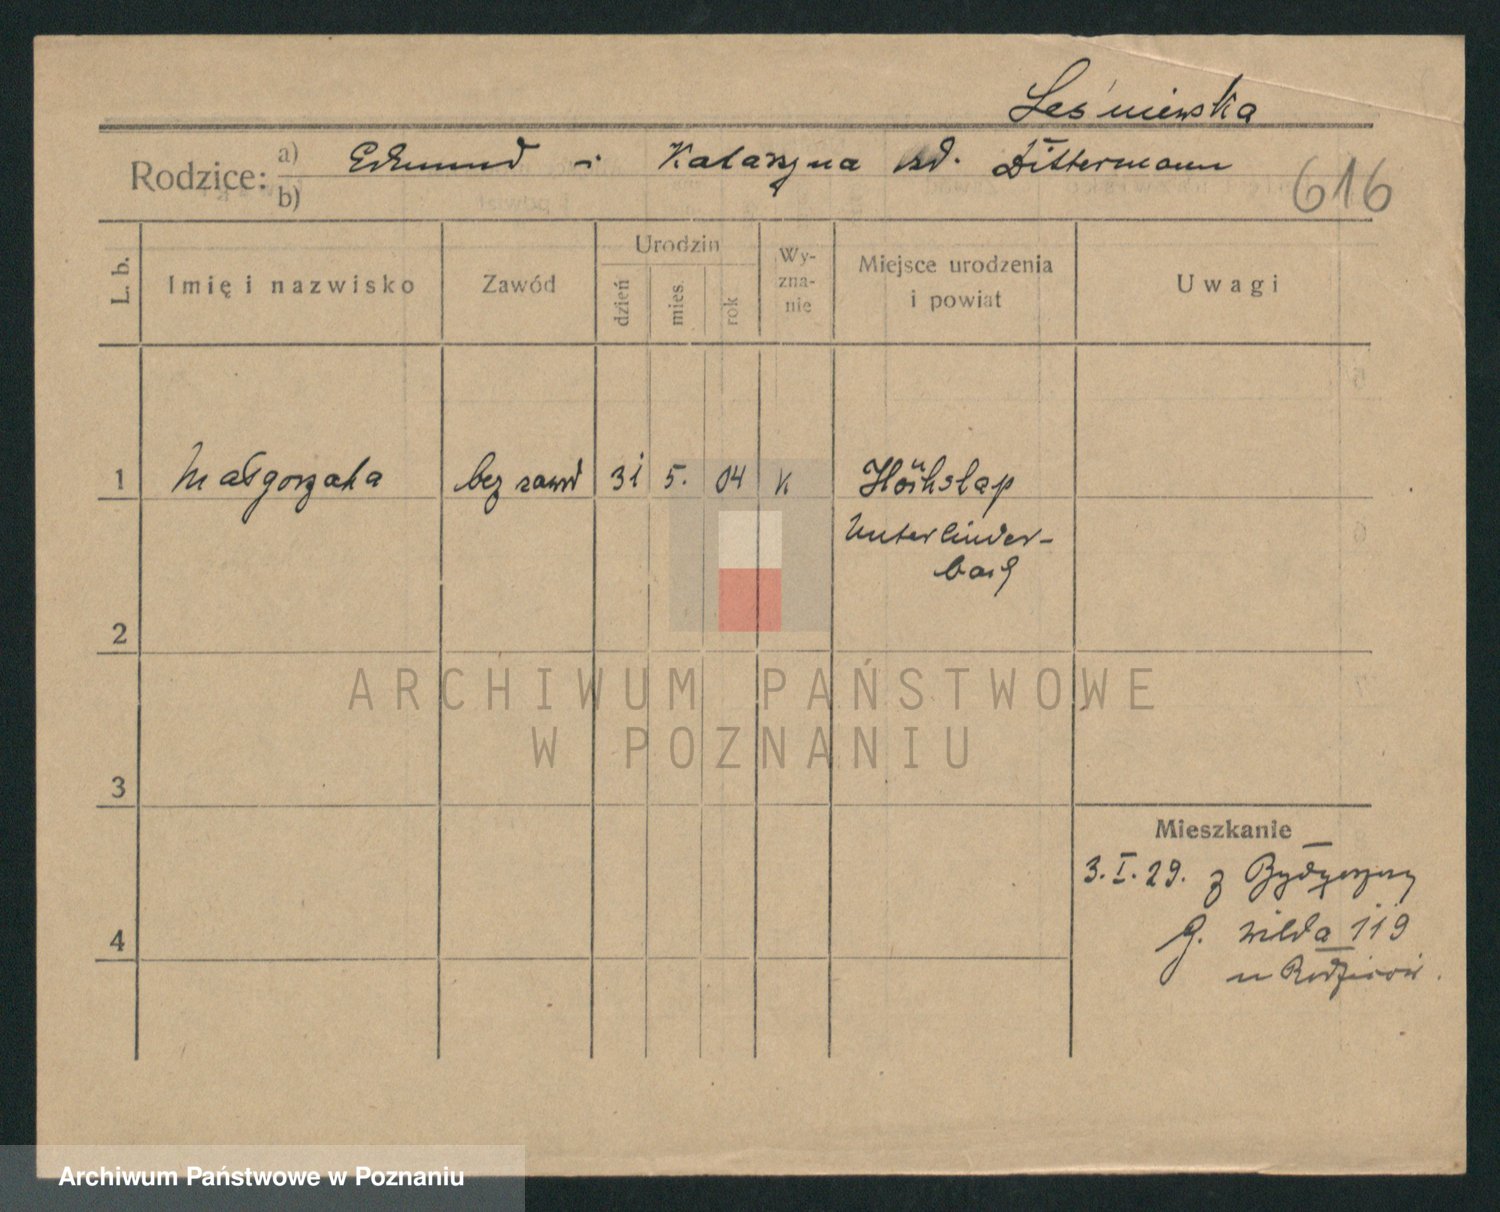 Leśniewska
Rodzice: a) Edmund i Katarzyna Dittermann
b)
616
L. b.
Imię i nazwisko
Zawód
Urodzin
dzień
mies.
rok
Wy-
zna-
nie
Miejsce urodzenia
i powiat
Uwagi
1 Małgorzata bez zawod 31 5. 04 K
Unterlinder-
bach
2
ARCHIWUM PAŃSTWOWE
W POZNANIU
3
Mieszkanie
3.I.29. z Bydgoszczy
4
G. Wilda 119
u Rodziców.
Archiwum Państwowe w Poznaniu